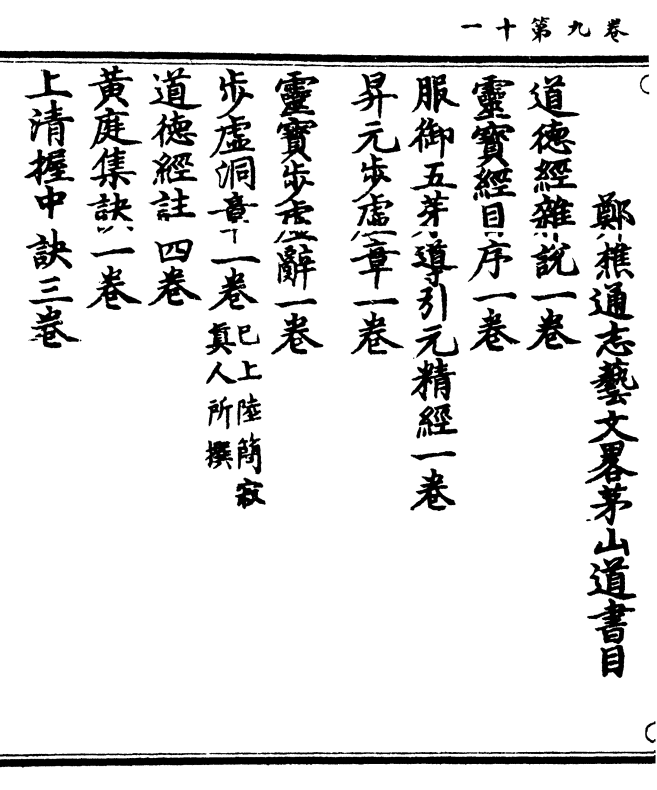 卷九第十一
鄭樵通志藝文畧茅山道書目
道德經雜說一卷
靈寶經目序一卷
服御五芽導引元精經一卷
昇元步虛章一卷
靈寶步虛辭一卷
步虛洞章一卷已上陸簡寂真人所撰
道德經註四卷
黃庭集訣一卷
上清握中訣三卷